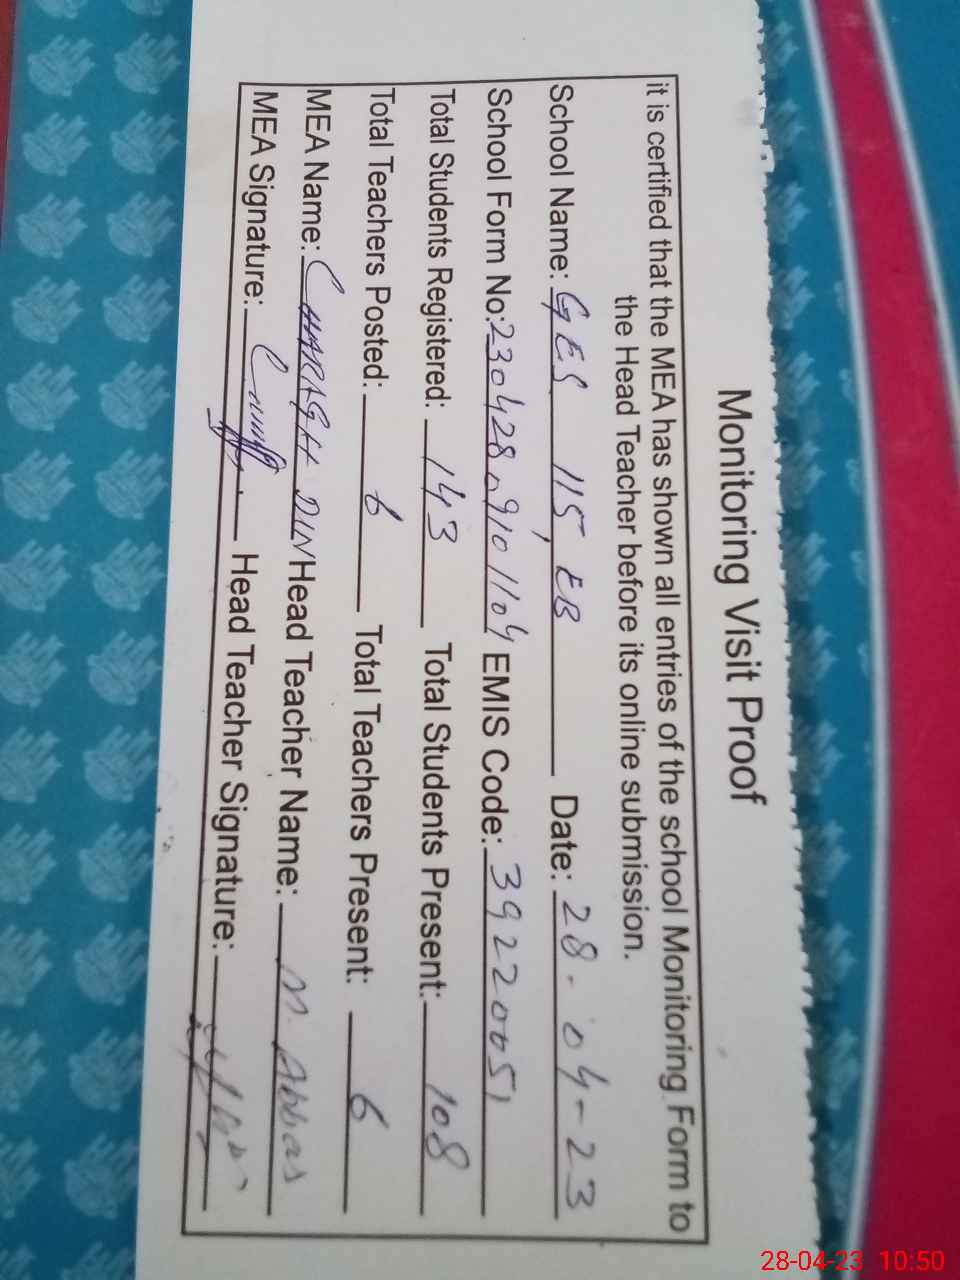 Monitoring Visit Proof
it is certified that the MEA has shown all entries of the school Monitoring Form to
the Head Teacher before its online submission.
School Name: GES 115 EB Date: 28-04-23
School Form No: 230428 0910 1104 EMIS Code: 39220051
Total Students Registered: 143 Total Students Present: 108
Total Teachers Posted: 6 Total Teachers Present: 6
MEA Name: CHARAGH DIN Head Teacher Name: M. Abbas
MEA Signature: Head Teacher Signature:
28-04-23 10:50